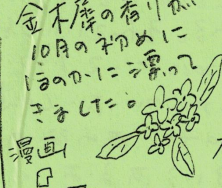 金木犀の香りが
10月の初めに
ほのかに漂って
きました。
漫画